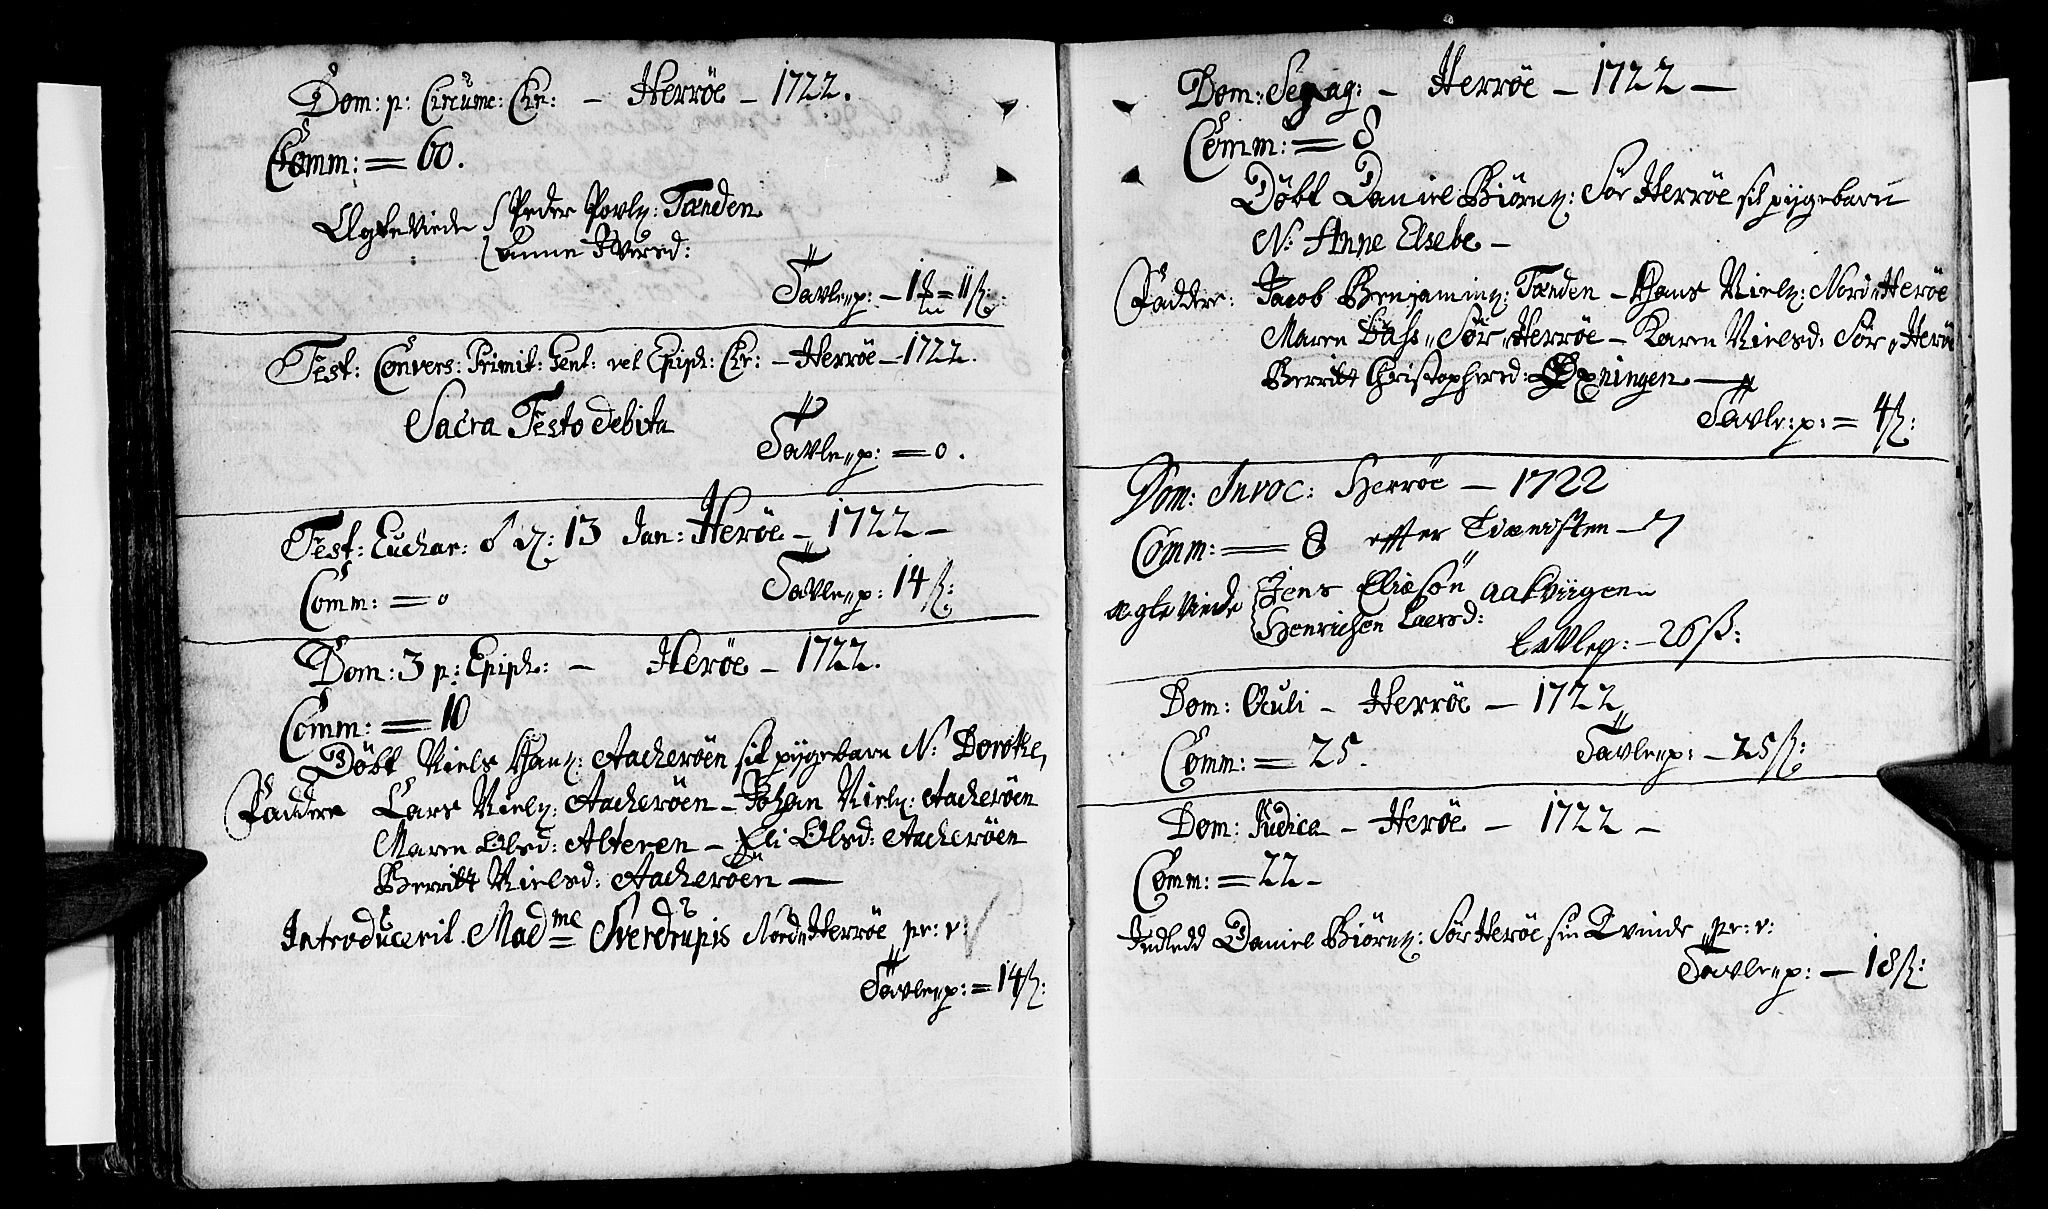 Dom: p: Circume: Chr: – Herröe – 1722.
Comm: = 60.
Ægte Viede Peder Povlß: Tænden
Anne Iversd:
Tavle„p: – 1 = 11 ß:
Fest: Convers: Primit: Gent: vel Epiph: Chr: – Herröe – 1722.
Sacra Festo debita
Tavle„p: = 0.
Fest: Euchar: ♂ d: 13 Jan: Heröe – 1722 –
Comm: = 0
Tavle„p: 14 ß:
Dom: 3 p: Epiph: – Heröe – 1722.
Comm: = 10
Döbt Niels Hanß: Aacheröen sit pygebarn N: Dorothe,
Faddere Lars Nielß: Aacheröen – Johan Nielß: Aacheröen
Maren Olsd: Alteren – Eli Olsd: Aacheröen
Berritt Nielsd: Aacheröen –
Introducerit Mad me Sverdrupis Nord„Herröe pr: v:
Tavle„p: = 14 ß:
Dom: Sexag: – Herröe – 1722 –
Comm: = 8
Döbt Daniel Biörnß: Sör Herröe sit pygebarn
N: Anne Elsebe –
Faddere: Jacob Benjaminß: Tænden – Hans Nielß: Nord„Heröe
Maren Dass„ Sör„Herröe – Karen Nielsd: Sör„Herröe
Berritt Christophersd: Öxningen –
Tavle:p: = 4 ß:
Dom: Invoc: Herröe – 1722
Comm: = 8 effter Tienisten – 7
ægte Viede Jens Eliesön Aakviigen
Henrichen Laersd:
tavlep: – 26 ß:
Dom: Oculi – Herröe – 1722
Comm: = 25.
Tavle„p: – 25 ß:
Dom: Judica – Heröe – 1722 –
Comm: = 22 –
Indledd Daniel Biörnß: Sör Heröe sin Qvinde „pr: v:
Tavle„p: – 18 ß: